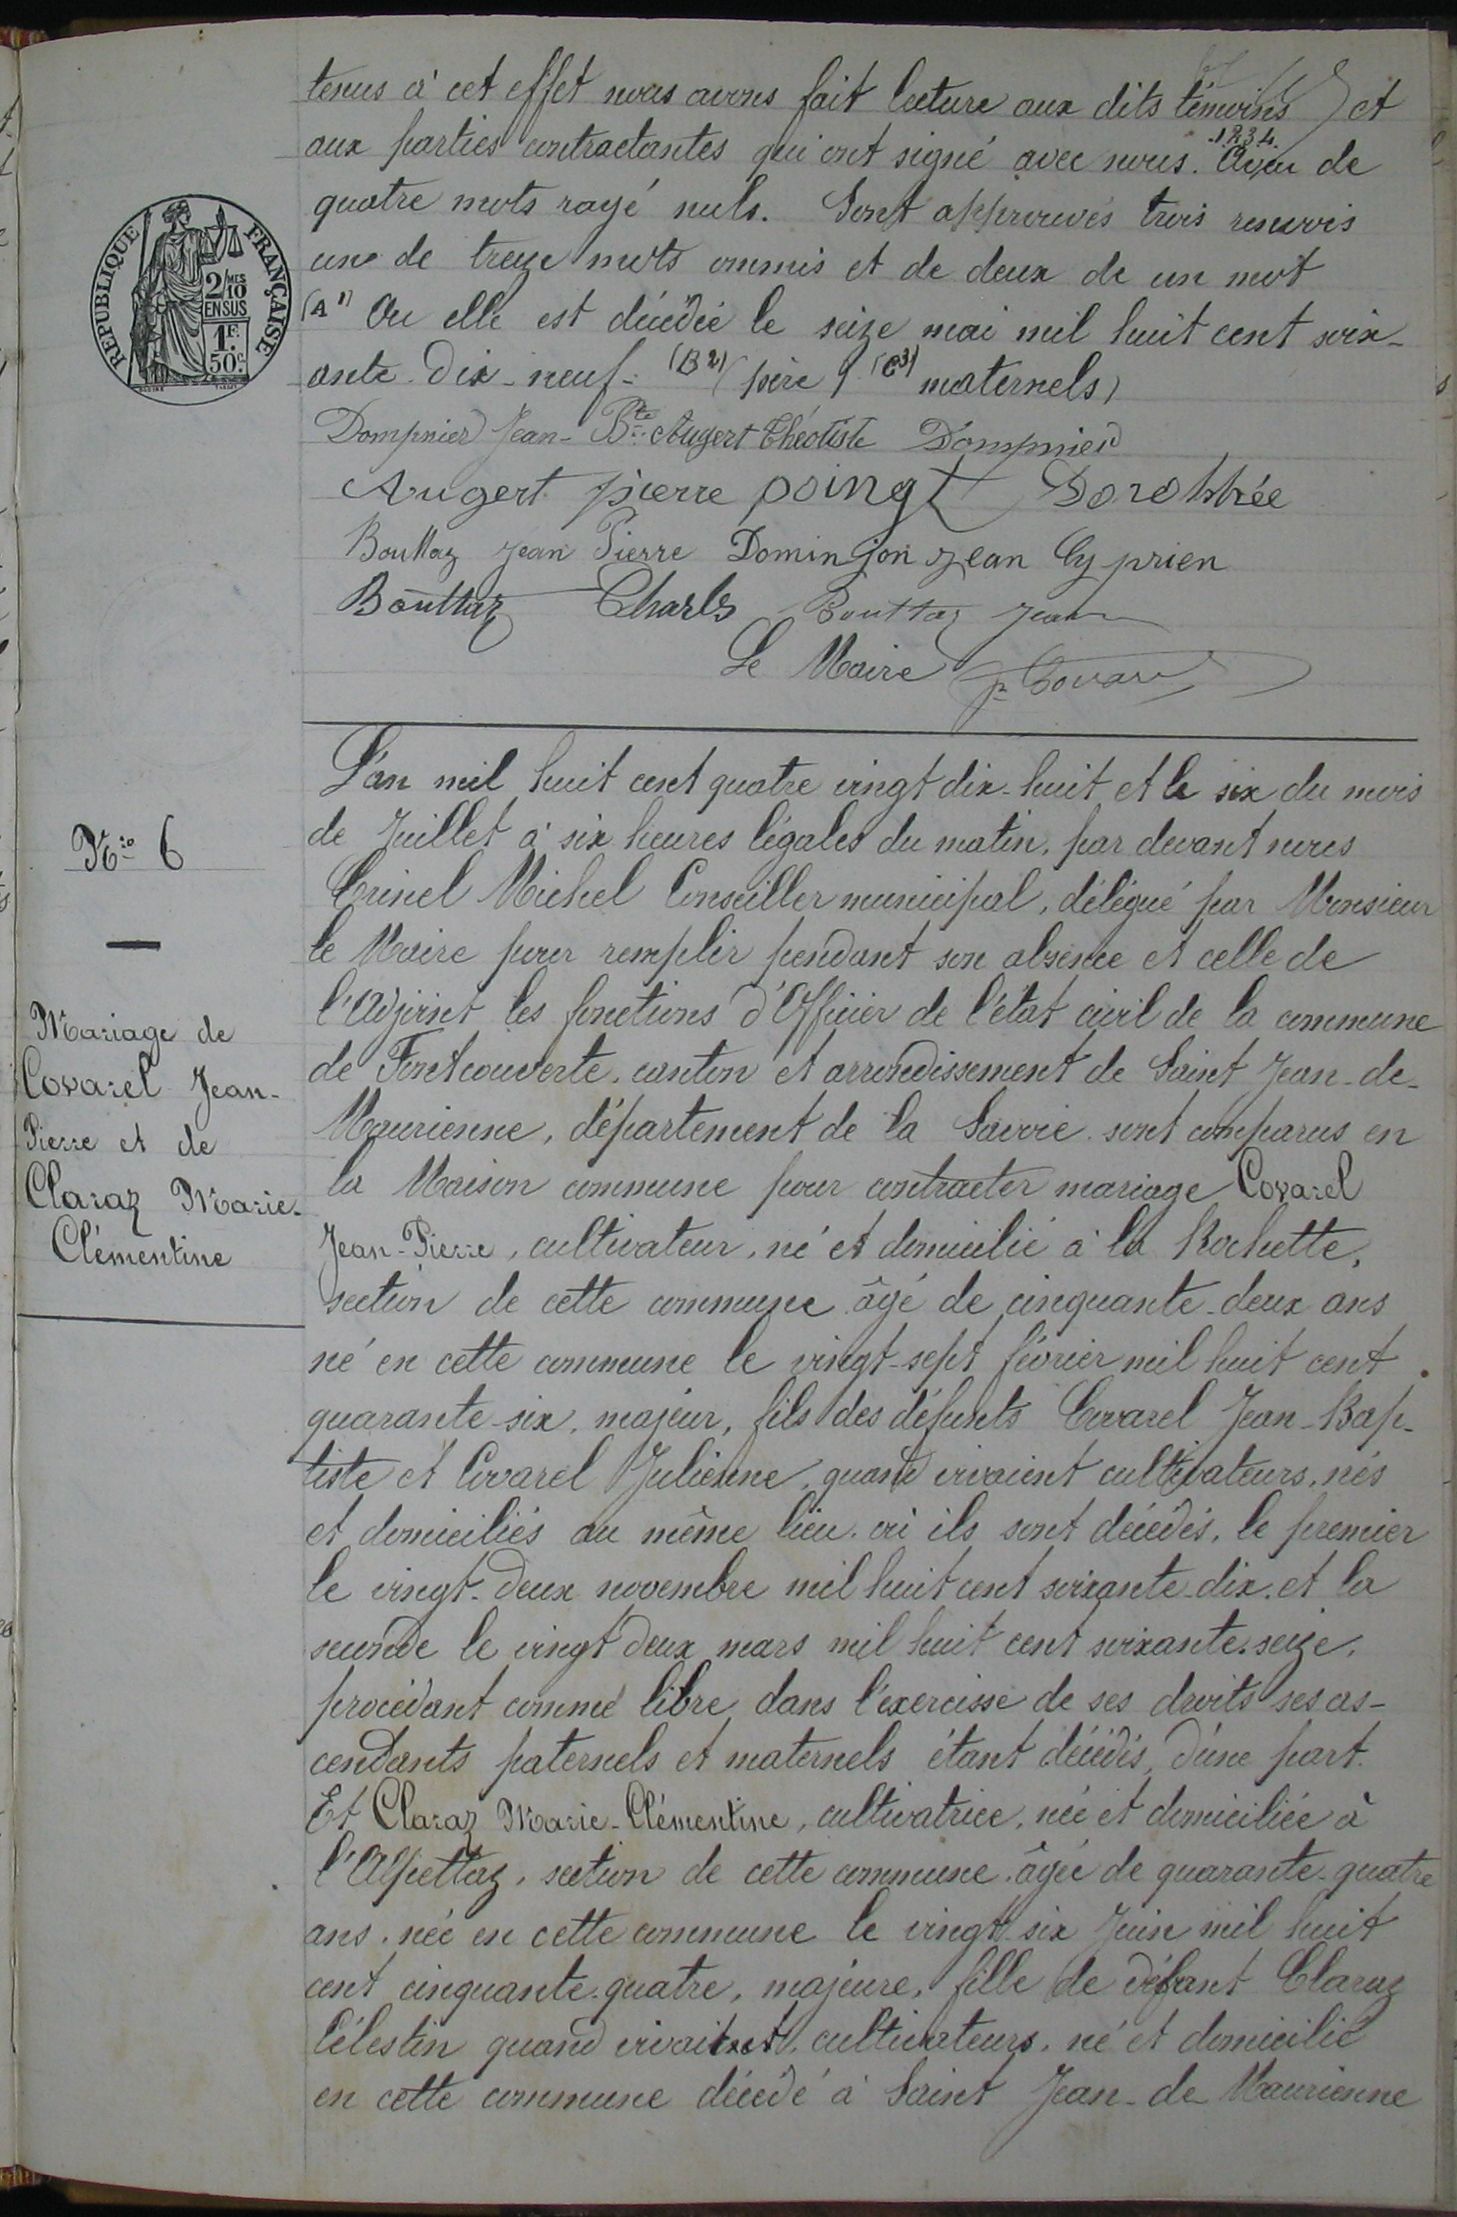 tenus à cet effet nous avons fait lecture aux dits témoins et
aux parties contractantes qui ont signé avec nous. 1.2.3.4. de
quatre mots rayé nuls. Sont approuvés trois renvois
une de treize mots ommis et de deux de un mot
(A1) Ou elle est décédée le seize mai mil huit cent soix-
ante-dix-neuf- (B2) (père) (C3) maternels)
Dompnier Jean-Bte Augert Théotiste Dompnier
Augert pierre poingt Dorothée
Bouttaz Jean Pierre Dominjon Jean Cyprien
Bouttaz Charles Bouttaz Jean
Le Maire
REPUBLIQUE FRANÇAISE
2/MES
10
EN SUS
1F.
50c.
L'an mil huit cent quatre vingt dix-huit et le six du mois
de Juillet à six heures légales du matin, par devant nous
Crinel Michel Conseiller municipal, délégué par Monsieur
le Maire pour remplir pendant son absence et celle de
l'Adjoint les fonctions d'Officier de l'état civil de la commune
de Fontcouverte, canton et arrondissement de Saint Jean-de-
Maurienne, département de la Savoie sont comparus en
la Maison commune pour contracter mariage Covarel
Jean-Pierre, cultivateur, né et domicilié à la Rochette,
section de cette commune âgé de cinquante-deux ans
né en cette commune le vingt-sept février mil huit cent
quarante-six, majeur, fils des défunts Covarel Jean-Bap-
tiste et Covarel Julienne, quand vivaient cultivateurs, nés
et domiciliés au même lieu où ils sont décédés, le premier
le vingt-deux novembre mil huit cent soixante-dix, et la
seconde le vingt deux mars mil huit cent soixante-seize,
procédant comme libre dans l'exercisse de ses droits ses as-
cendants paternels et maternels étant décédés, d'une part.
Et Claraz Marie-Clémentine, cultivatrice, née et domiciliée à
l'Alpettaz, section de cette commune, âgée de quarante-quatre
ans, née en cette commune le vingt-six Juin mil huit
cent cinquante-quatre, majeure, fille de défant Claraz
Célestin quand vivait, cultivateurs, né et domicilié
en cette commune décédé à Saint Jean-de-Maurienne
Nro 6
Mariage de
Covarel Jean-
Pierre et de
Claraz Marie-
Clémentine